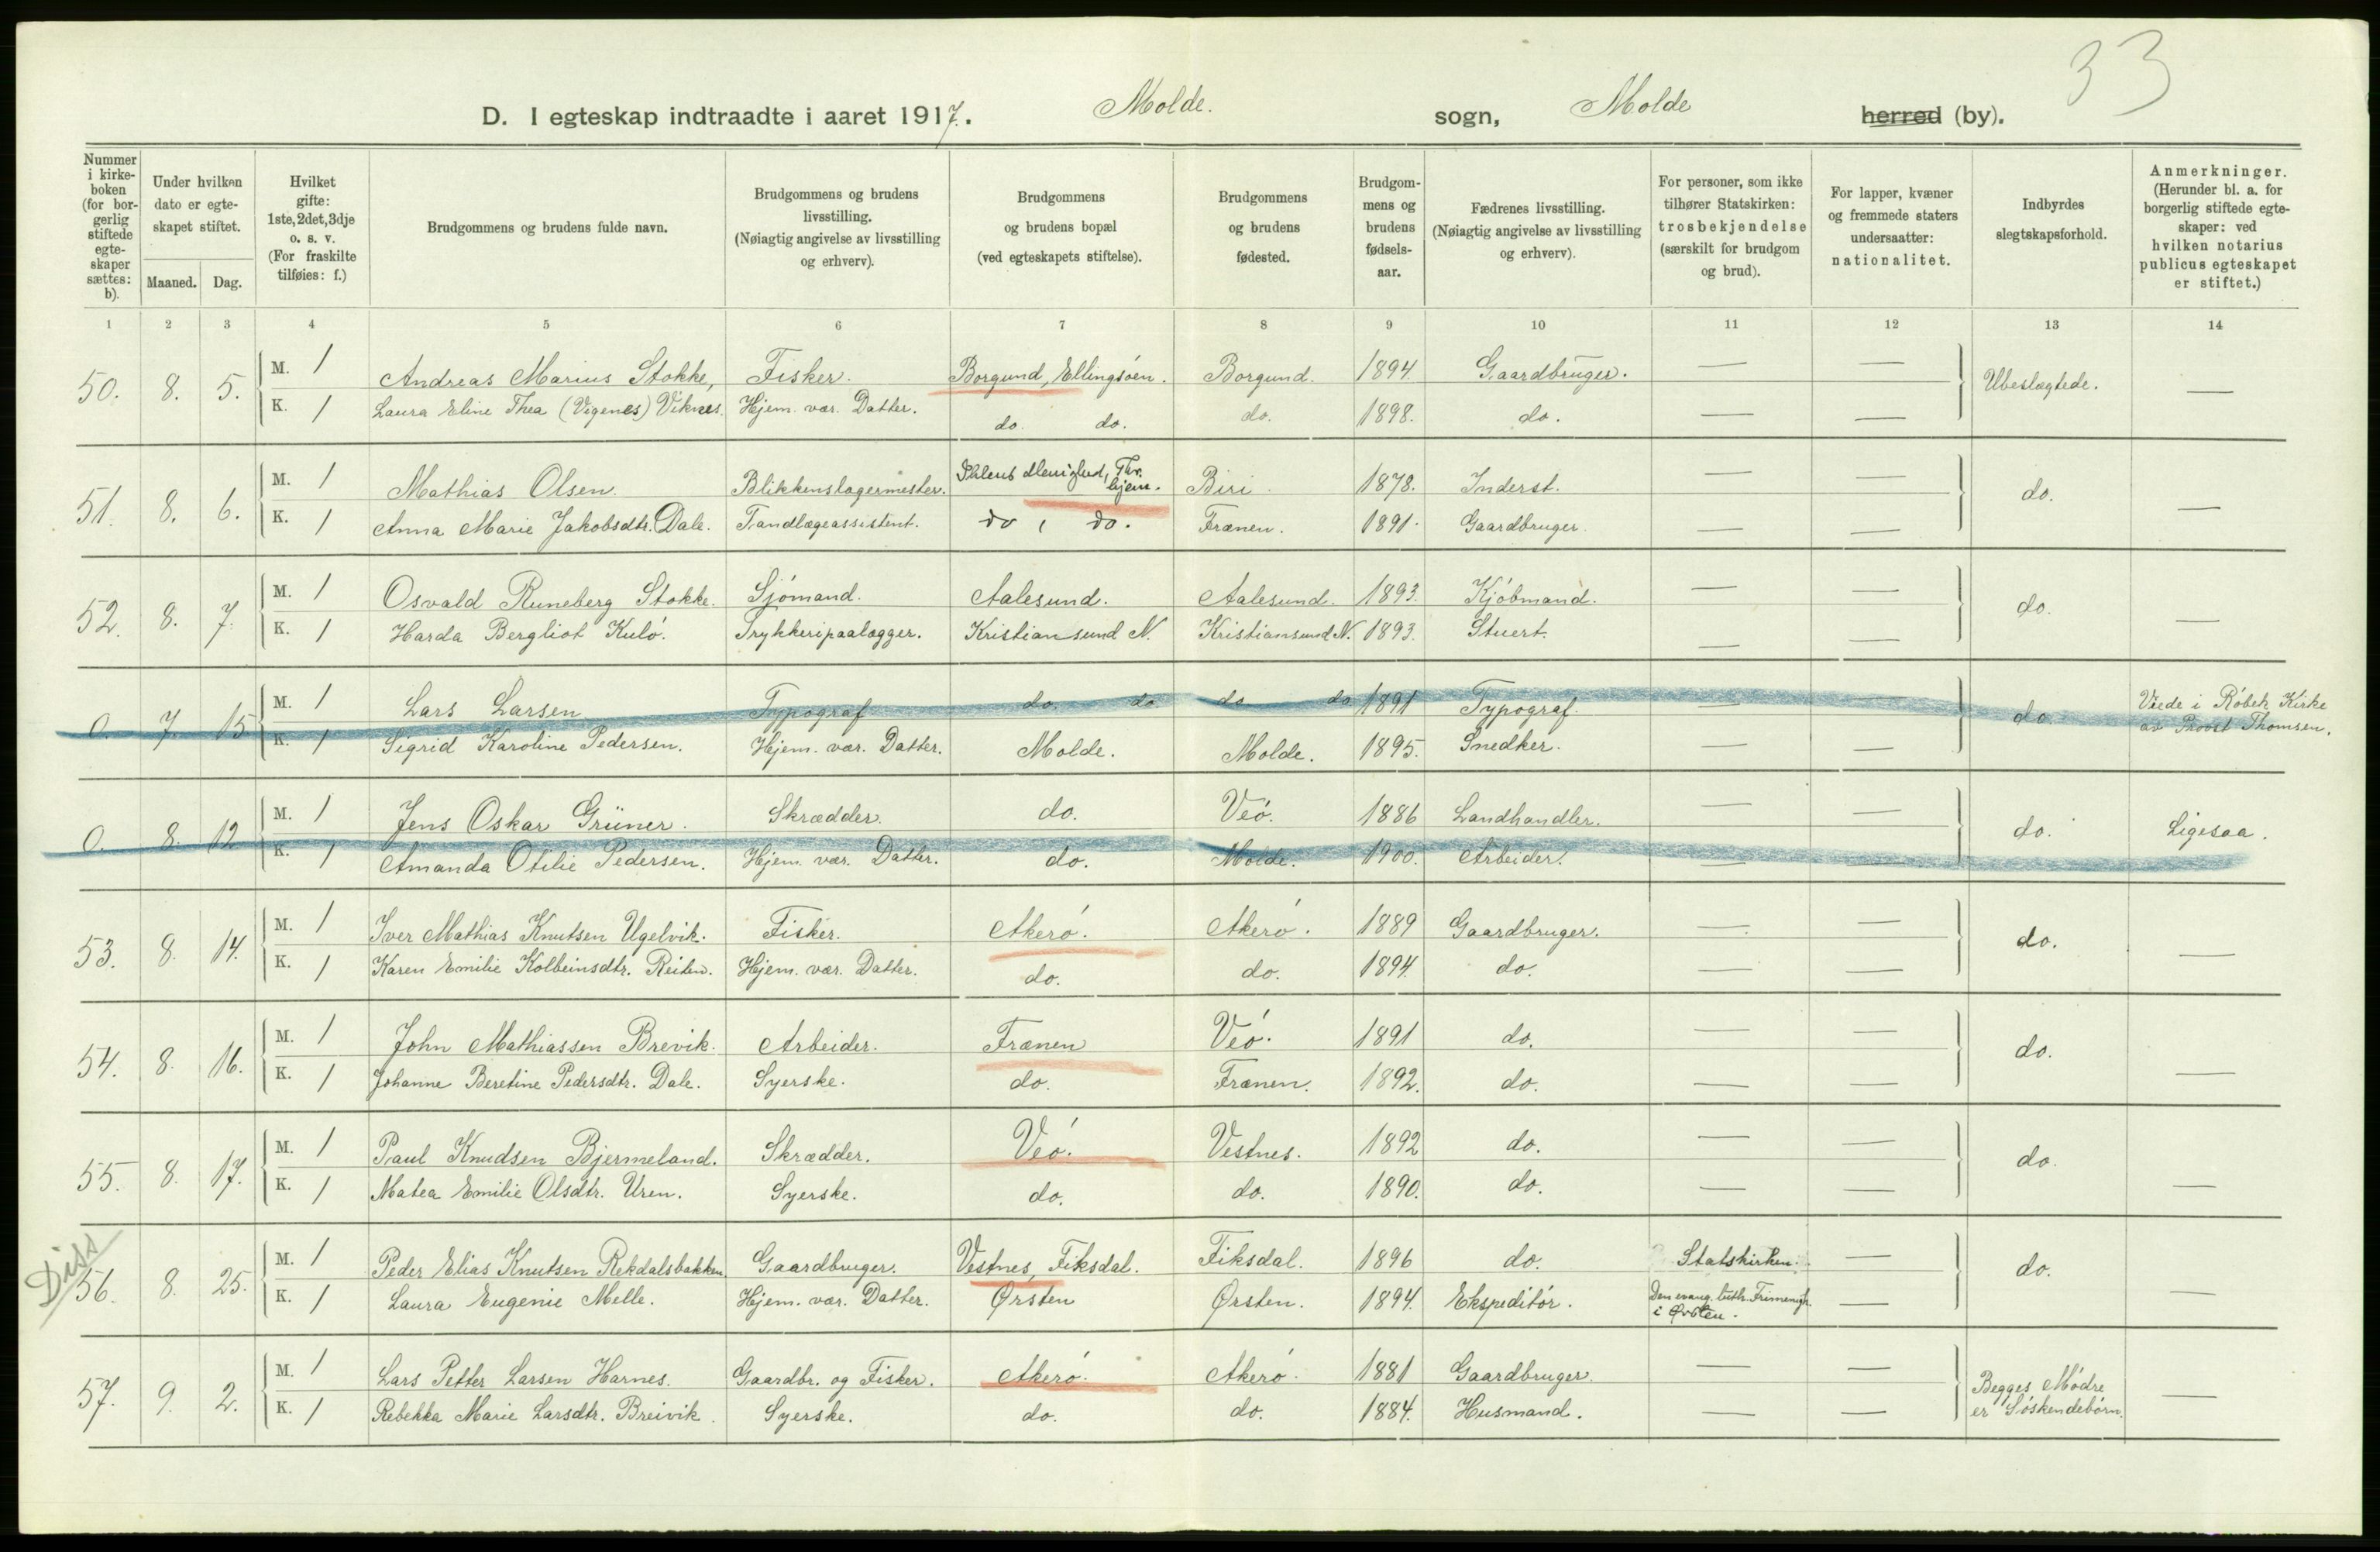 33
D. I egteskap indtraadte i aaret 1917. Molde. sogn, Molde herred (by).
Nummer i kirkeboken (for borgerlig stiftede egteskaper sættes: b).
Under hvilken dato er egteskapet stiftet.
Maaned. Dag.
Hvilket gifte: 1ste, 2det, 3dje o. s. v. (For fraskilte tilføies: f.)
Brudgommens og brudens fulde navn.
Brudgommens og brudens livsstilling. (Nøiagtig angivelse av livsstilling og erhverv).
Brudgommens og brudens bopæl (ved egteskapets stiftelse).
Brudgommens og brudens fødested.
Brudgommens og brudens fødselsaar.
Fædrenes livsstilling. (Nøiagtig angivelse av livsstilling og erhverv).
For personer, som ikke tilhører Statskirken: trosbekjendelse (særskilt for brudgom og brud).
For lapper, kvæner og fremmede staters undersaatter: nationalitet.
Indbyrdes slegtskapsforhold.
Anmerkninger. (Herunder bl. a. for borgerlig stiftede egteskaper: ved hvilken notarius publicus egteskapet er stiftet.)
1 2 3 4 5 6 7 8 9 10 11 12 13 14
50. 8. 5. M. 1 Andreas Marius Stokke, Fisker. Borgund, Ellingsóen. Borgund. 1894 Gaardbruger. — — Ubeslægtede. —
K. 1 Laura Eline Thea (Vigenes) Viknes. Hjem. vær. Datter. do. do. do. 1898. do. — —
51. 8. 6. M. 1 Mathias Olsen. Blikkenslagermester. Biri. 1878. Inderst. — — do. —
K. 1 Anna Marie Jakobsdtr. Dale. Tandlægeassistent. do, do. Frænen. 1891. Gaardbruger. — —
52. 8. 7. M. 1 Osvald Runeberg Stokke. Sjómand. Aalesund. Aalesund. 1893. Kjóbmand. — — do. —
K. 1 Harda Bergliot Kuló. Trykkeripaalægger. Kristiansund N. Kristiansund N. 1893. Stuert. — —
0. 7. 15 M. 1 Lars Larsen Typograf do. do. do. do. 1891 Typograf. — — do. Viede i Róbek Kirke av Provst Thomsen.
K. 1 Sigrid Karoline Pedersen. Hjem. vær. Datter. Molde. Molde. 1895. Snedker. — —
0. 8. 12 M. 1 Jens Oskar Grüner. Skrædder. do. Veó. 1886 Landhandler. — — do. Ligesaa.
K. 1 Amanda Otilie Pedersen. Hjem. vær. Datter. do. Molde. 1900. Arbeider. — —
53. 8. 14. M. 1 Iver Mathias Knutsen Ugelvik. Fisker. Akeró. Akeró. 1889 Gaardbruger. — — do. —
K. 1 Karen Emilie Kolbeinsdtr. Reiten. Hjem. vær. Datter. do. do. 1894. do. — —
54. 8. 16. M. 1 John Mathiassen Brevik. Arbeider. Frænen Veó. 1891 do. — — do. —
K. 1 Johanne Beretine Pedersdtr. Dale. Syerske. do. Frænen. 1892. do. — —
55. 8. 17. M. 1 Paul Knudsen Bjermeland. Skrædder. Veó. Vestnes. 1892 do. — — do. —
K. 1 Matea Emilie Olsdtr. Uren. Syerske. do. do. 1890. do. — —
Diss
56. 8. 25. M. 1 Peder Elias Knutsen Rekdalsbakken Gaardbruger. Vestnes, Fiksdal. Fiksdal. 1896 do. Statskirken. — do. —
K. 1 Laura Eugenie Melle. Hjem. vær. Datter. Ørsten Ørsten. 1894. Ekspeditór. Den evang. luth. Frimenigh. i Ørsten. —
57. 9. 2. M. 1 Lars Petter Larsen Harnes. Gaardbr. og Fisker. Akeró. Akeró. 1881 Gaardbruger. — — Begges Módre er Sóskendebórn. —
K. 1 Rebekka Marie Larsdtr. Breivik. Syerske. do. do. 1884. Husmand. — —